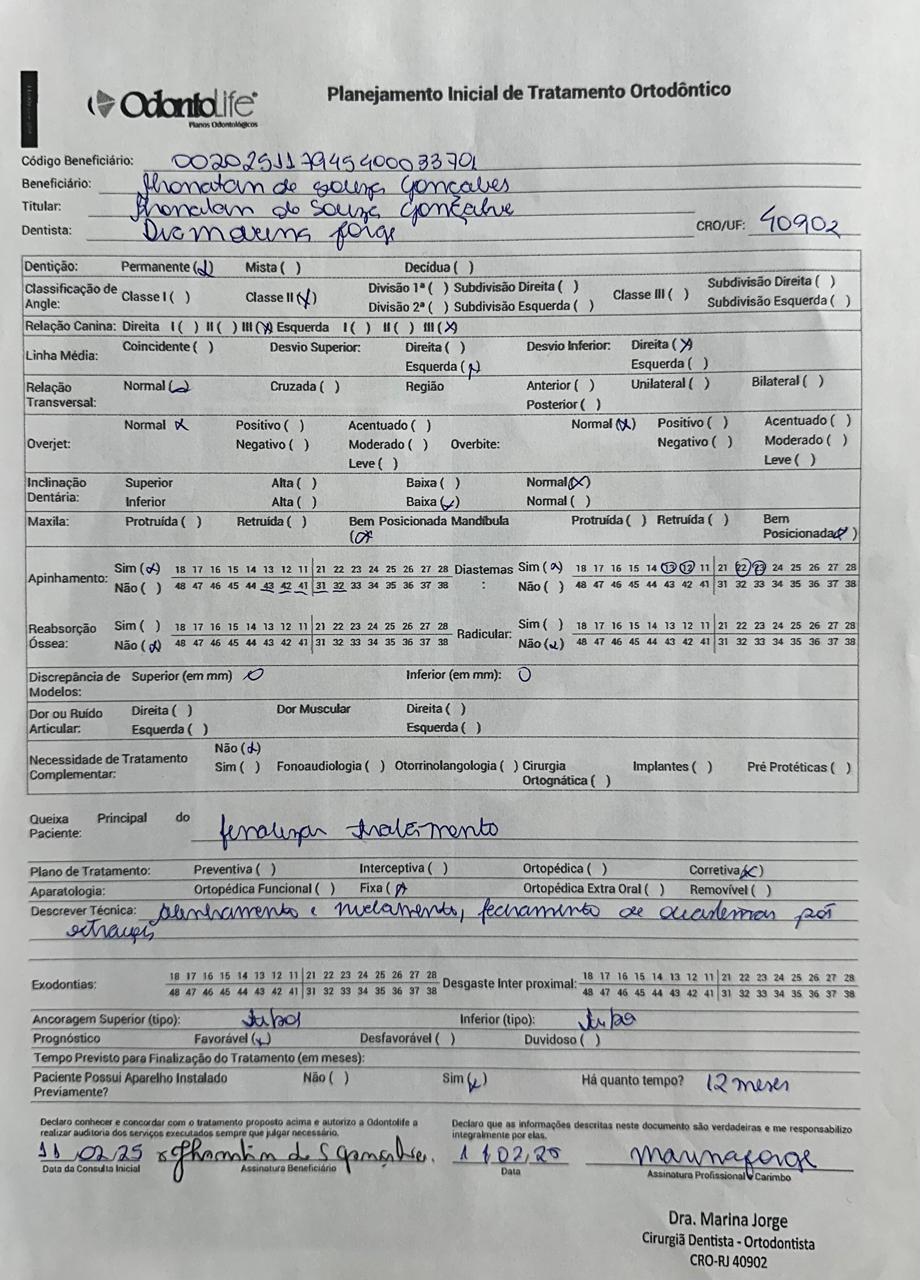 OdontoLife
Planos Odontológicos
Planejamento Inicial de Tratamento Ortodôntico
Código Beneficiário: 00202511794540033701
Beneficiário: Jhonatan de Souza Gonçalves
Titular: Jhonatan de Souza Gonçalve
Dentista: Dra Marina Jorge CRO/UF: 40902
Dentição: Permanente (x) Mista ( ) Decídua ( )
Classificação de Angle: Classe I ( ) Classe II (x) Divisão 1ª ( ) Subdivisão Direita ( ) Classe III ( ) Subdivisão Direita ( )
Divisão 2ª ( ) Subdivisão Esquerda ( ) Subdivisão Esquerda ( )
Relação Canina: Direita I ( ) II ( ) III (x) Esquerda I ( ) II ( ) III (x)
Linha Média: Coincidente ( ) Desvio Superior: Direita ( ) Desvio Inferior: Direita (x)
Esquerda (x) Esquerda ( )
Relação Transversal: Normal (x) Cruzada ( ) Região Anterior ( ) Unilateral ( ) Bilateral ( )
Posterior ( )
Overjet: Normal x Positivo ( ) Acentuado ( ) Overbite: Normal (x) Positivo ( ) Acentuado ( )
Negativo ( ) Moderado ( ) Negativo ( ) Moderado ( )
Leve ( ) Leve ( )
Inclinação Dentária: Superior Alta ( ) Baixa ( ) Normal (x)
Inferior Alta ( ) Baixa (x) Normal ( )
Maxila: Protruída ( ) Retruída ( ) Bem Posicionada (x) Mandíbula Protruída ( ) Retruída ( ) Bem Posicionada (x)
Apinhamento: Sim (x) 18 17 16 15 14 13 12 11 21 22 23 24 25 26 27 28 Diastemas: Sim (x) 18 17 16 15 14 13 12 11 21 22 23 24 25 26 27 28
Não ( ) 48 47 46 45 44 43 42 41 31 32 33 34 35 36 37 38 Não ( ) 48 47 46 45 44 43 42 41 31 32 33 34 35 36 37 38
Reabsorção Óssea: Sim ( ) 18 17 16 15 14 13 12 11 21 22 23 24 25 26 27 28 Radicular: Sim ( ) 18 17 16 15 14 13 12 11 21 22 23 24 25 26 27 28
Não (x) 48 47 46 45 44 43 42 41 31 32 33 34 35 36 37 38 Não (x) 48 47 46 45 44 43 42 41 31 32 33 34 35 36 37 38
Discrepância de Modelos: Superior (em mm) 0 Inferior (em mm): 0
Dor ou Ruído Articular: Direita ( ) Dor Muscular Direita ( )
Esquerda ( ) Esquerda ( )
Necessidade de Tratamento Complementar: Não (x)
Sim ( ) Fonoaudiologia ( ) Otorrinolangologia ( ) Cirurgia Ortognática ( ) Implantes ( ) Pré Protéticas ( )
Queixa Principal do Paciente: finalizar tratamento
Plano de Tratamento: Preventiva ( ) Interceptiva ( ) Ortopédica ( ) Corretiva (x)
Aparatologia: Ortopédica Funcional ( ) Fixa (x) Ortopédica Extra Oral ( ) Removível ( )
Descrever Técnica: alinhamento e nivelamento, fechamento de diastemas pós
extração
Exodontias: 18 17 16 15 14 13 12 11 21 22 23 24 25 26 27 28 Desgaste Inter proximal: 18 17 16 15 14 13 12 11 21 22 23 24 25 26 27 28
48 47 46 45 44 43 42 41 31 32 33 34 35 36 37 38 48 47 46 45 44 43 42 41 31 32 33 34 35 36 37 38
Ancoragem Superior (tipo): tubos Inferior (tipo): tubo
Prognóstico Favorável (x) Desfavorável ( ) Duvidoso ( )
Tempo Previsto para Finalização do Tratamento (em meses):
Paciente Possui Aparelho Instalado Previamente? Não ( ) Sim (x) Há quanto tempo? 12 meses
Declaro conhecer e concordar com o tratamento proposto acima e autorizo a Odontolife a
realizar auditoria dos serviços executados sempre que julgar necessário.
Declaro que as informações descritas neste documento são verdadeiras e me responsabilizo
integralmente por elas.
11/02/25 x Jhonatan de S Gonçalve. 11/02/25 Marina Jorge
Data da Consulta Inicial Assinatura Beneficiário Data Assinatura Profissional Carimbo
Dra. Marina Jorge
Cirurgiã Dentista - Ortodontista
CRO-RJ 40902